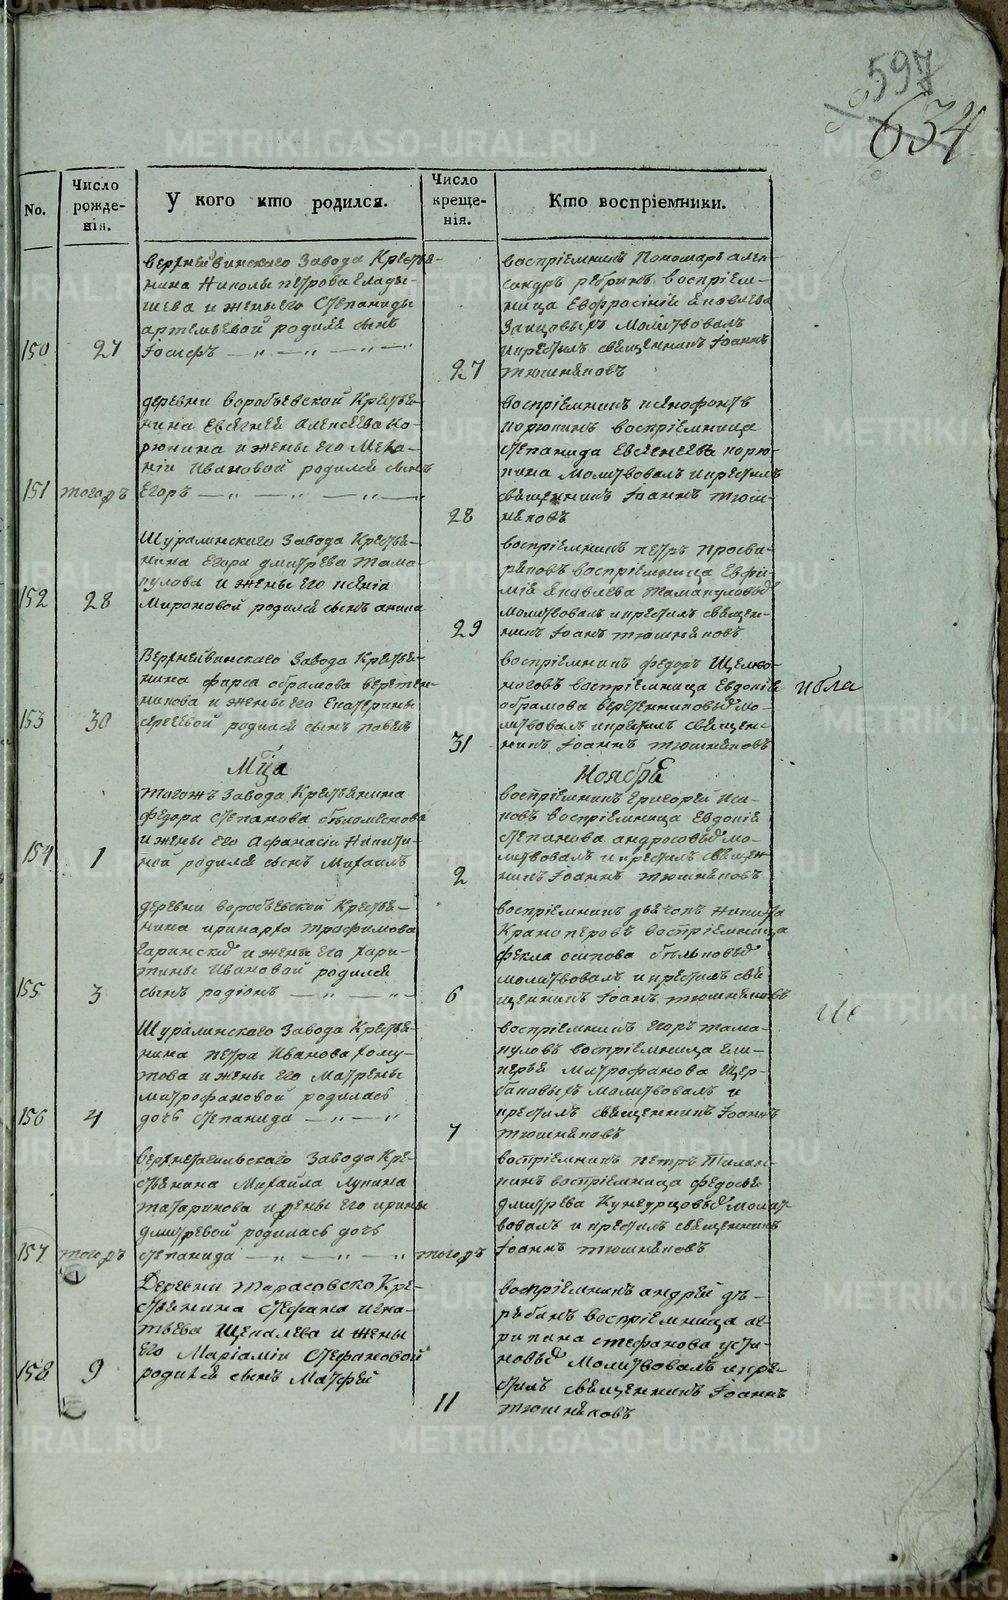 597
634
No.
Число рожде-нія.
У кого кто родился.
Число креще-нія.
Кто воспріемники.
150
27
верхнейвинскаго Завода Крестья-
нина Николы петрова Глады-
шева и жены его Степаниды
артемьевой родился сынъ
Іосифъ
27
воспріемникъ Пономарь алек-
сандръ рябринъ воспріем-
ница Евфросиніи
Заицовыхъ Молитвовалъ
и крестилъ священникъ Іоаннъ
тюшняковъ
151
тогожъ
деревни воробьевской Крестья-
нина Евсегнея алексеева ко-
рюкина и жены его Мела-
ніи Ивановой родился сынъ
Егоръ
28
воспріемникъ ксенофонтъ
корюкинъ воспріемница
степанида Евсегнеева корю-
кина Молитвовалъ и крестилъ
священникъ Іоаннъ тюш-
няковъ
152
28
Шуралинскаго Завода Крестья-
нина Егора дмитрева тама-
кулова и жены его ксеніа
Мироновой родился сынъ акила
29
воспріемникъ петръ просви-
ряковъ воспріемница Евфи-
мія яковлева Тамакуловыхъ
молитвовалъ и крестилъ священ-
никъ Іоанъ тюшняковъ
153
30
Верхнейвинскаго Завода Крестья-
нина фирса абрамова веретен-
никова и жены его Екатерины
сергеевой родился сынъ павелъ
31
воспріемникъ федоръ Щелко-
ноговъ воспріемница Евдокія
абрамова веретенниковыхъ мо-
литвовалъ и крестилъ священ-
никъ Іоаннъ тюшняковъ
Мца Ноября
154
1
тогожъ Завода Крестьянина
федора степанова
и жены его афанасіи Никити-
ной родился сынъ Михаилъ
2
воспріемникъ григорей иса-
ковъ воспріемница Евдокія
степанова андросовыхъ мо-
литвовалъ и крестилъ священ-
никъ Іоаннъ тюшняковъ
155
3
деревни воробьевской Крестья-
нина принарха трофимова
гаринскихъ и жены его хари-
тины Ивановой родился
сынъ радіонъ
6
воспріемникъ дьячокъ Никита
Краноперовъ воспріемница
фекла осипова бельковыхъ
молитвовалъ и крестилъ свя-
щенникъ Іоанъ тюшняковъ
156
4
Шуралинскаго Завода Крестья-
нина петра Иванова хому-
това и жены его Матрены
митрофановой родилась
дочь степанида
7
воспріемникъ Егоръ тама-
куловъ воспріемница гли-
керья митрофанова Щер-
баковыхъ молитвовалъ и
крестилъ священникъ Іоаннъ
тюшняковъ
157
тогожъ
верхнетагильскаго Завода Кре-
стьянина Михайла лукина
татаринова и жены его ирины
дмитревой родилась дочь
степанида
тогожъ
воспріемникъ петръ Талан-
кинъ воспріемница федосья
дмитрева Кунгурцовыхъ молит-
вовалъ и крестилъ священникъ
Іоаннъ тюшняковъ
158
9
Деревни тарасовско Кре-
стьянина Стефана игна-
тьева Щепалева и жены
его Маріамии Стефановой
родился сынъ Матфей
11
воспріемникъ андрей дѣ-
рябинъ воспріемница аг-
рипина стефанова усти-
новыхъ Молитвовалъ и кре-
стилъ священникъ Іоаннъ
тюшняковъ
METRIKI.GASO-URAL.RU